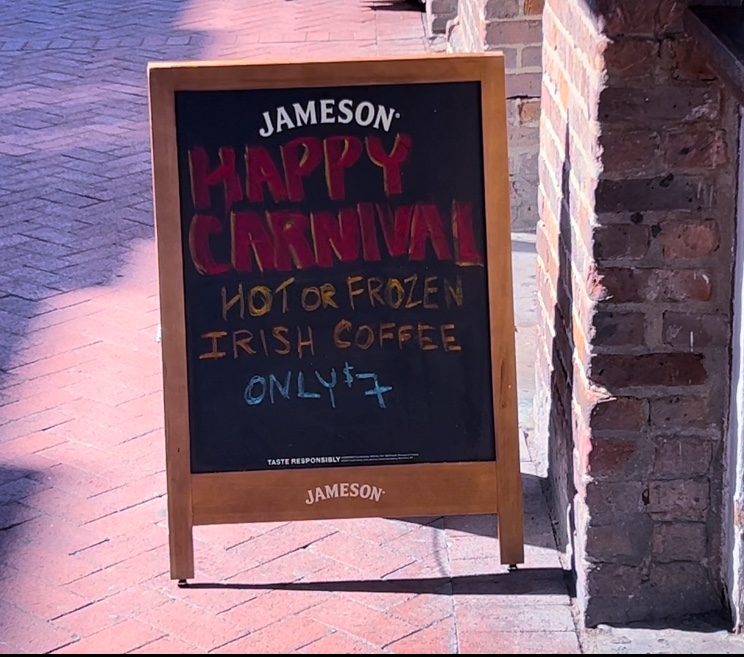 JAMESON
HAPPY
CARNIVAL
HOT OR FROZEN
IRISH COFFEE
ONLY $7
TASTE RESPONSIBLY
JAMESON